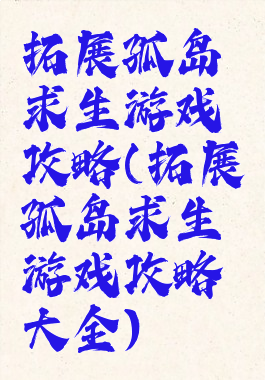 拓展孤岛
求生游戏
攻略(拓展
孤岛求生
游戏攻略
大全)